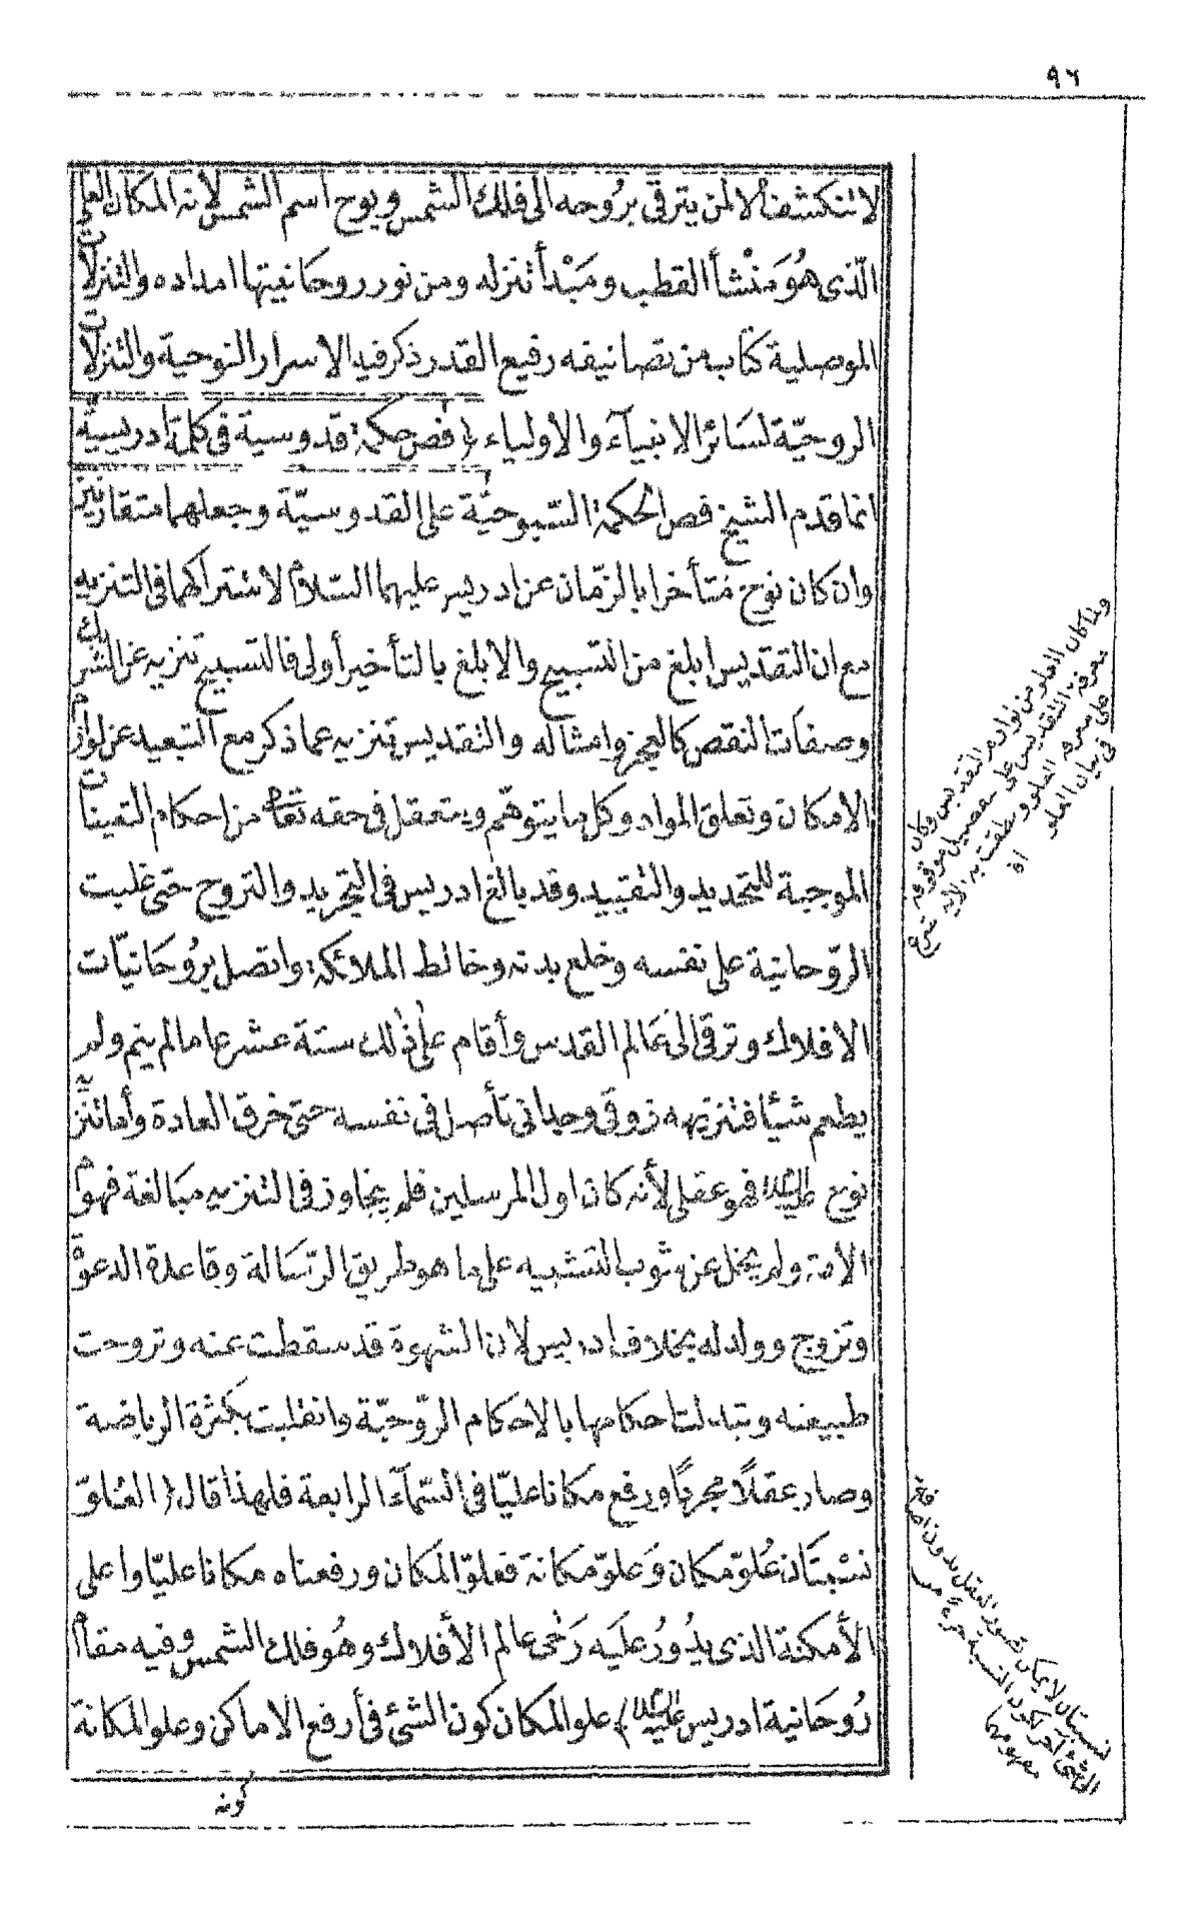 ٩٦
لا تنكشف الا لمن يترقى برُوحه الى فلك الشمس ويوح اسم الشمس لانه المكان العلى
الّذى هُوَ مَنْشأ القطب ومَبْدأ تنزله ومن نور روحانيتها امداده والتنزلات
الموصلية كتاب من تصانيفه رفيع القدر ذكر فيه الاسرار النوحية والتنزلات
الروحيّة لسَائر الانبيآء والاولياء ﴿ فص حكمة قدوسية فى كلمة ادريسية ﴾
انما قدم الشيخ فص الحكمة السّبوحيّة على القدوسيّة وجعلهما متقارنين
وان كان نوح مُتأخرا بالزّمان عن ادريس عليهما السّلام لاشتراكهما فى التنزيه
مع ان التقديس ابلغ من التسبيح والابلغ بالتأخير أولى فالتسبيح تنزيه عن الشريك
وصفات النقص كالعجز وامثاله والتقديس تنزيه عما ذكر مع التبعيد عن لوازم
الامكان وتعلق المواد وكل ما يتوهّم ويتعقل فى حقه تعالى من احكام التعينات
الموجبة للتحديد والتقييد وقد بالغ ادريس فى التجريد والتروح حتى غلبت
الرّوحانية على نفسه وخلع بدنه وخالط الملائكة واتصل برُوحَانيّات
الافلاك وترقى الى عَالم القدس وأقام على ذلك ستة عشر عاما لم ينم ولم
يطعم شيًا فتنزيهه ذوقى وجدانى تأصل فى نفسه حتى خرق العادة وأما تنزيه
نوح عليه السلام فهو عقلى لأنه كان اول المرسلين فلم يتجاوز فى التنزيه مبالغة فهوم
الامة ولم يخل عن شوب التشبيه على ما هو طريق الرّسَالة وقاعدة الدعوة
وتزوج وولد له بخلاف ادريس لان الشهوة قد سقطت عنه وتروحت
طبيعته وتبدلت احكامها بالاحكام الرّوحيّة وانقلبت بكثرة الرياضة
وصار عقلًا مجردًا ورفع مكانا عليّا فى السّمآء الرابعة فلهذا قال ﴿ العُلوّ
نسْبتَان عُلوّ مكان وَعلوّ مكانة فعلوّ المكان ورفعناه مكانا عليّا واعلى
الأمكنة الذى يدُورُ علَيه رَحى عالم الأفلاك وهُو فلك الشمس وفيه مقام
رُوحَانية ادريس عليه السلام ﴾ علو المكان كون الشئ فى أرفع الاماكن وعلو المكانة
كونه
ولما كان العلو من لوازم التقديس وكان
معرفة التقديس على تفصيل موقوفة
على معرفة العلو ونطقت به الاية شرع
فى بيان العلو اه
نسبتان لا يمكن تصور العقل بدون اضافة
الى شئ آخر لكون النسبة جزءً من
مفهومهما